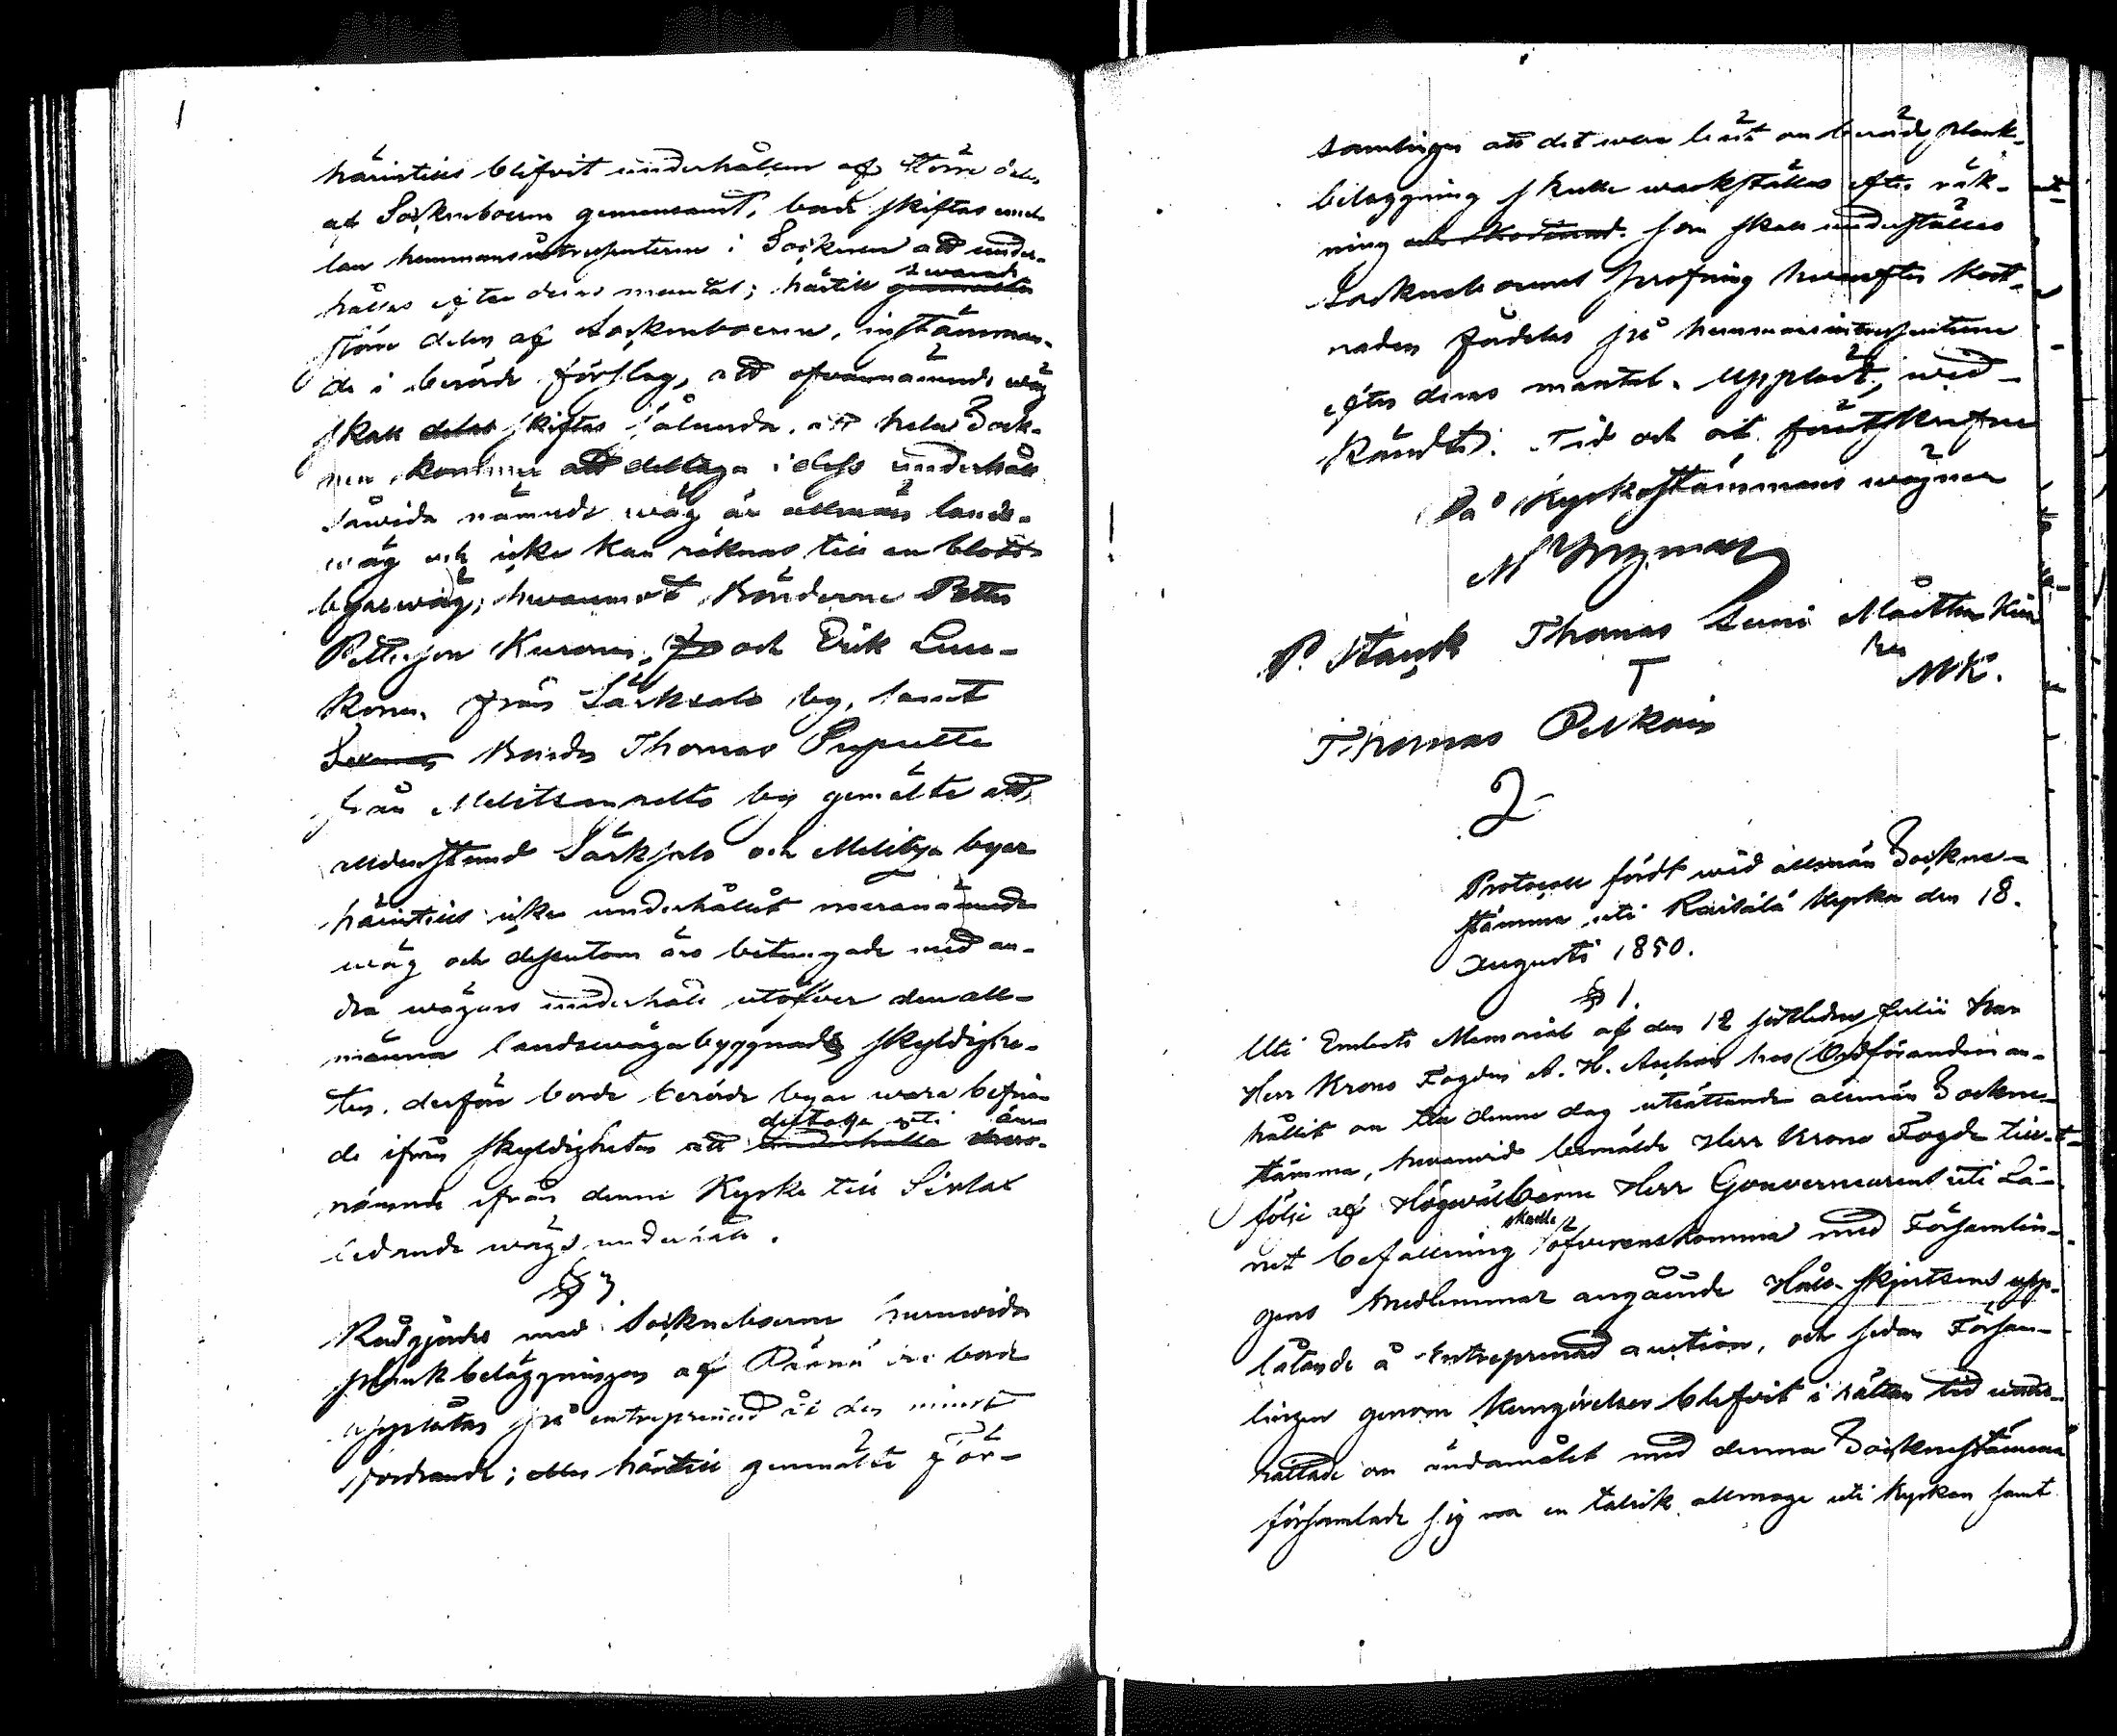 härintills blifvit underhållen af större delen
af Sockneboerne gemensamt, borde skiftas emel-
lan hemmansintressenterne i Socknen att under-
hållas efter deras mantal; härtill gemälte swarade
större delen af Sockneboerne, instämman-
de i berörde förslag, att ofvannämnde wäg
skall delas skiftas sålunda, att hela Sock-
nen kommer att deltaga i dess underhåll
såwida nämnde wäg är allmän lands-
wäg och icke kan räknas till en blott
byarwäg; hwaremot Bönderne Petter
Pettersson Kuronen, och Erik Luu-
konen från Särksalo by, samt
Bonden Thomas Pupulle
från Melitsanselto by gemälte att,
alldenstund Särksalo och Melitza byar
härintills icke underhållit meranämnde
wäg och dessutom äro betungade med an-
dra wägars underhåll utöfver den all-
männa landswägabyggnads skyldighe-
ten, derföre borde berörde byar wara befria-
de ifrån skyldigheten att underhålla deltaga uti ofvan-
nämnde ifrån denne Kyrka till Sirlax
ledande wägs underhåll.
§ 3
Rådgjordes med Sockneboerne huruwida
plankbeläggningen af Pärnä bro borde
upplåtas på entreprenad åt den minst
fordrande; eller härtill genmälte För-
1
samlingen att det wore bäst om berörde plank-
beläggning skulle werkställas efter räk-
ning som skall underställas
Sockneboernes pröfning hwarefter kost-
naden fördelas på hemmansintressenterne
efter deras mantal. Uppläst, wid-
kändt. Tid och ort förutskrefne
På Kyrkostämmans wägnar
P. Starck Thomas Suni Mårtten Kiu
T
ru
MK.
Thomas Pelkoin
2
Protocoll fördt wid allmän Sockne-
stämma uti Raisälä Kyrka den 18.
Augusti 1850.
§ 1.
Uti Embets Memorial af den 12 sistledne Julii har
Herr Krono Fogden A. H. Aschan hos Ordföranden an-
hållit om till denne dag utsättande allmän Sockne-
stämma, hwarwid bemälde Herr Krono Fogde till-
följe af Högwälborne Herr Gouverneurens uti Lä-
net befallning skulle öfverenskomma med Församlin-
gens medlemmar angående Håll-skjutsens upp-
låtande å Entreprenad auction, och sedan Försam-
lingen genom kungörelser blifvit i rättan tid under-
rättade om ändamålet med denna Socknestämma
församlade sig nu en talrik allmoge uti kyrkan samt